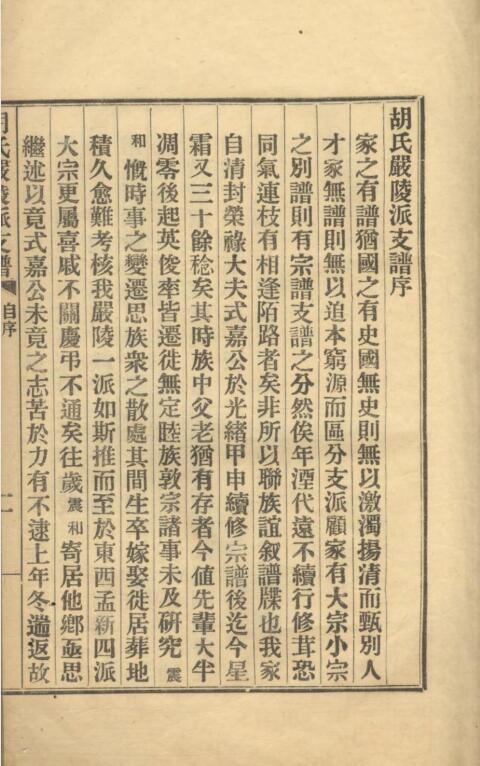 胡氏嚴陵派支譜序
家之有譜猶國之有史國無史則無以激濁揚清而甄別人
才家無譜則無以追本窮源而區分支派顧家有大宗小宗
之別譜則有宗譜支譜之分然俟年湮代遠不續行修葺恐
同氣連枝有相逢陌路者矣非所以聯族誼叙譜牒也我家
自清封榮祿大夫式嘉公於光緒甲申續修宗譜後迄今星
霜又三十餘稔矣其時族中父老猶有存者今値先輩大半
凋零後起英俊率皆遷徙無定睦族敦宗諸事未及研究震
和慨時事之變遷思族衆之散處其間生卒嫁娶徙居葬地
積久愈難考核我嚴陵一派如斯推而至於東西孟新四派
大宗更屬喜戚不關慶弔不通矣往歲震和寄居他鄕亟思
繼述以竟式嘉公未竟之志苦於力有不逮上年冬遄返故
胡氏嚴陵派支譜
自序